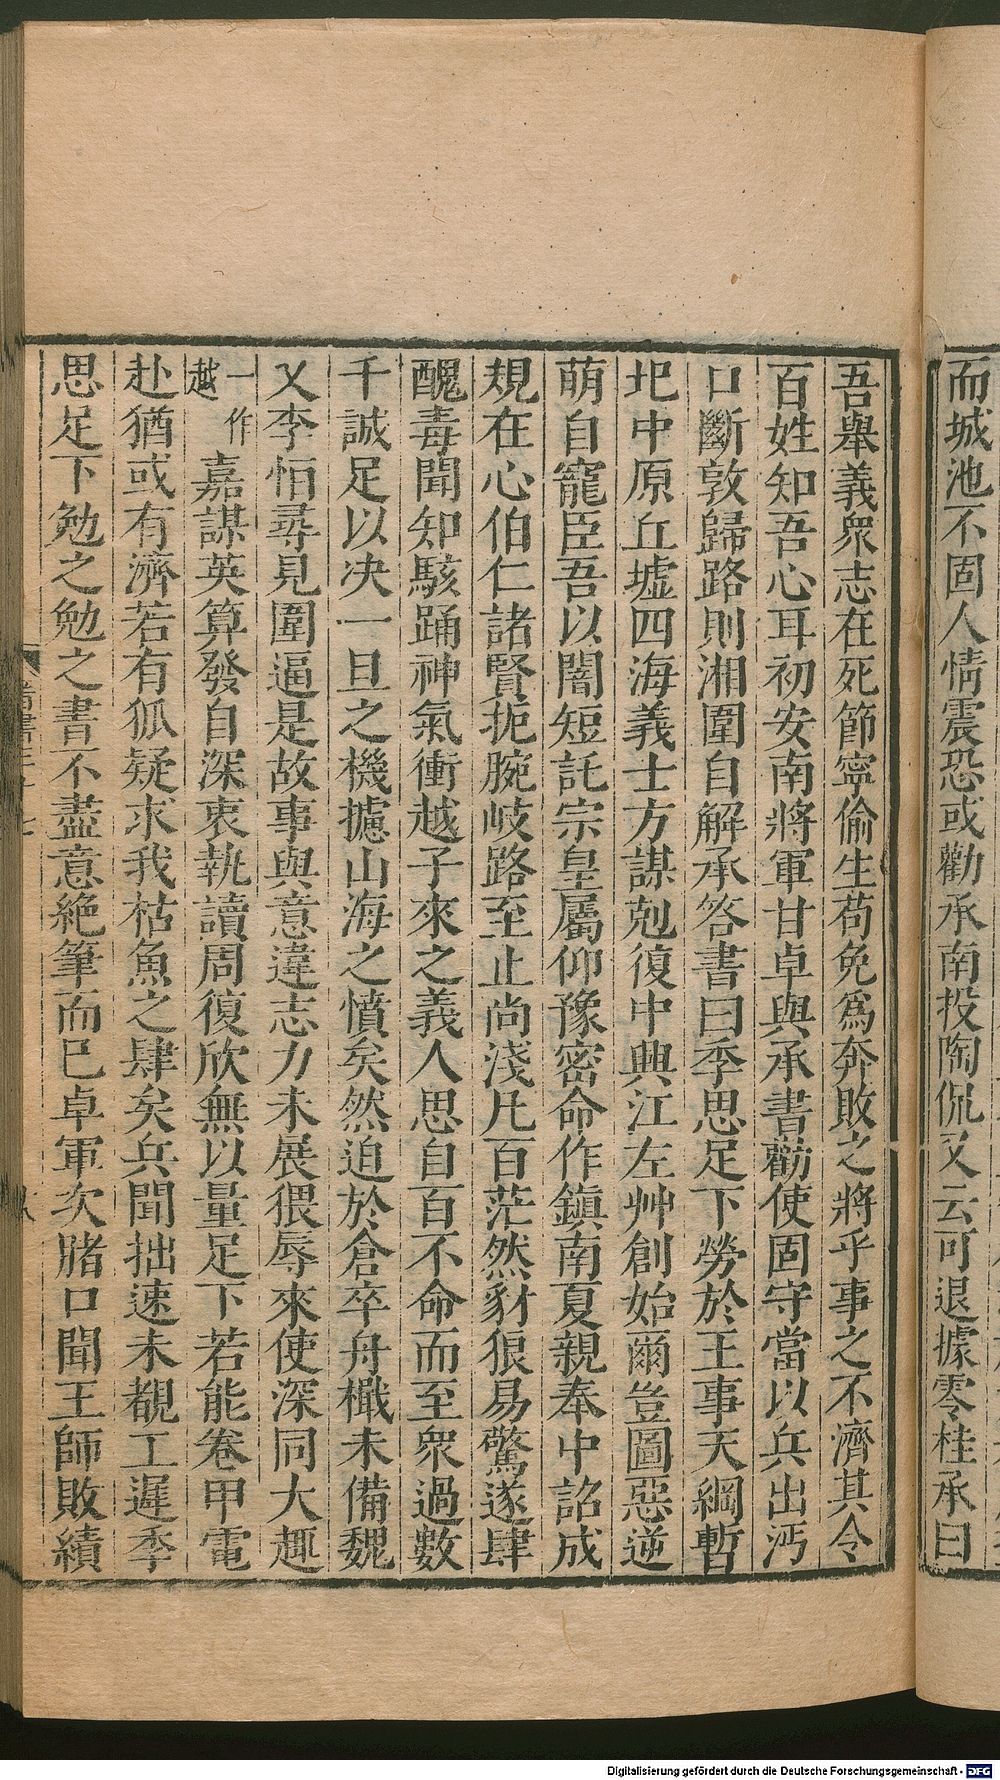 而城池不固人情震恐或勸承南投陶侃又云可退據零桂承曰
吾舉義衆志在死節寧偷生苟免爲奔敗之將乎事之不濟其令
百姓知吾心耳初安南將軍甘卓與承書勸使固守當以兵出沔
口斷敦歸路則湘圍自解承答書曰季思足下勞於王事天綱暫
圮中原丘墟四海義士方謀剋復中興江左艸創始爾豈圖惡逆
萌自寵臣吾以闇短託宗皇屬仰豫密命作鎮南夏親奉中詔成
規在心伯仁諸賢扼腕岐路至止尚淺凡百茫然豺狼易驚遂肆
醜毒聞知駭踊神氣衝越子來之義人思自百不命而至衆過數
千誠足以决一旦之機攄山海之憤矣然迫於倉卒舟檝未備魏
乂李怕尋見圍逼是故事與意違志力未展猥辱來使深同大趣
一作越嘉謀英算發自深衷執讀周復欣無以量足下若能卷甲電
赴猶或有濟若有狐疑求我枯魚之肆矣兵聞拙速未覩工遲季
思足下勉之勉之書不盡意絶筆而已卓軍次䐗口聞王師敗績
Digitalisierung gefördert durch die Deutsche Forschungsgemeinschaft - DFG